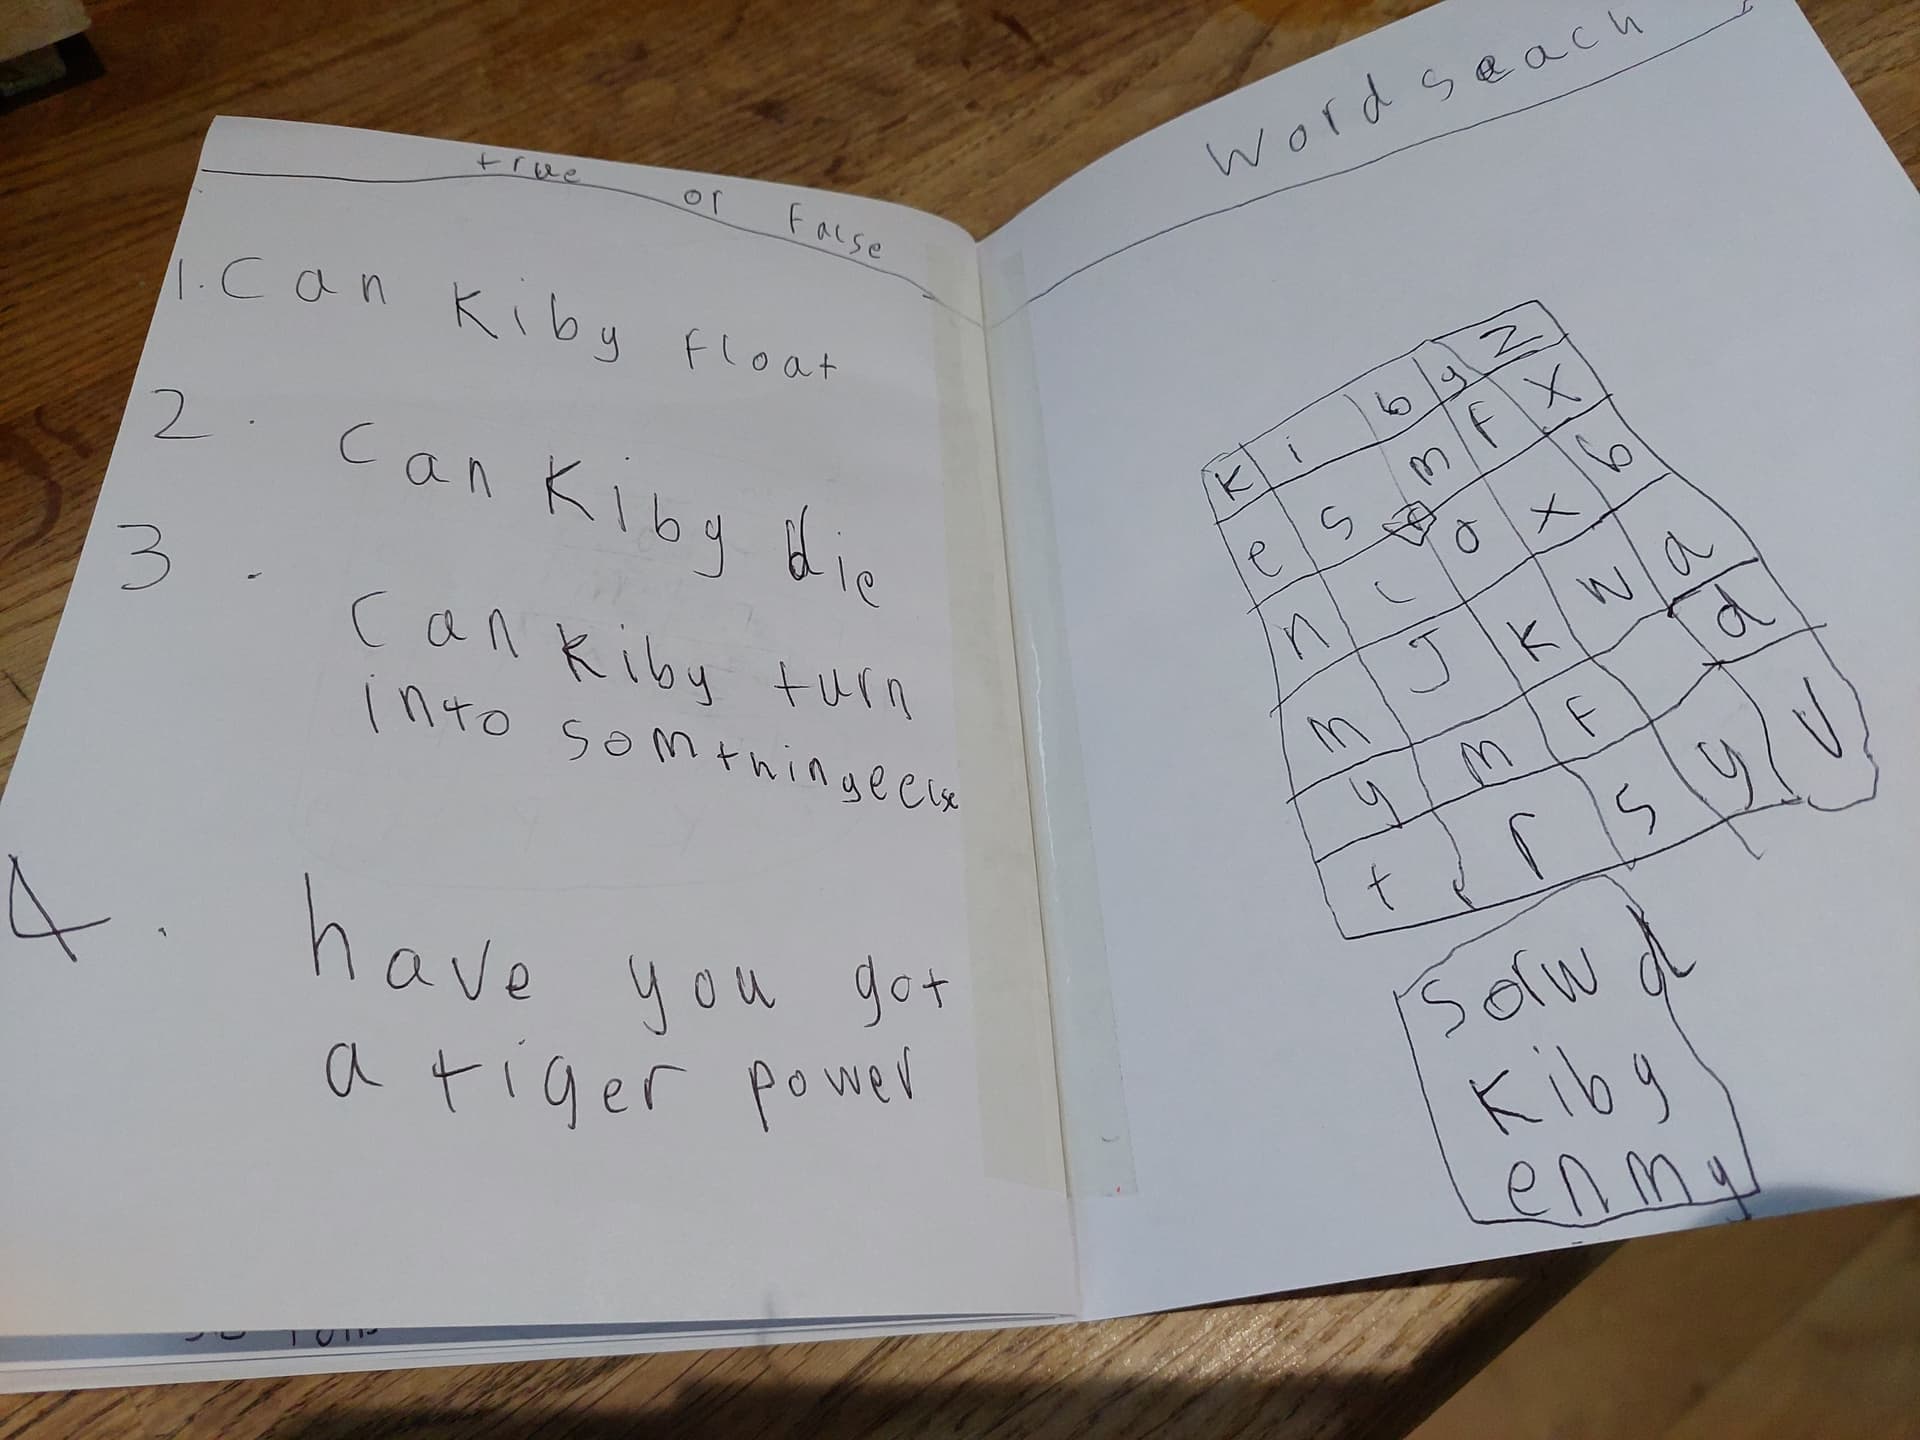 true or False
1. Can Kiby float
2. Can Kiby die
3. Can Kiby turn
into somthingeelse
4. have you got
a tiger power
Wordseach
K i b y z
e s m f x
n i o x b
m J k w a
y m F d
t r s y v
sorwd
Kiby
enmy